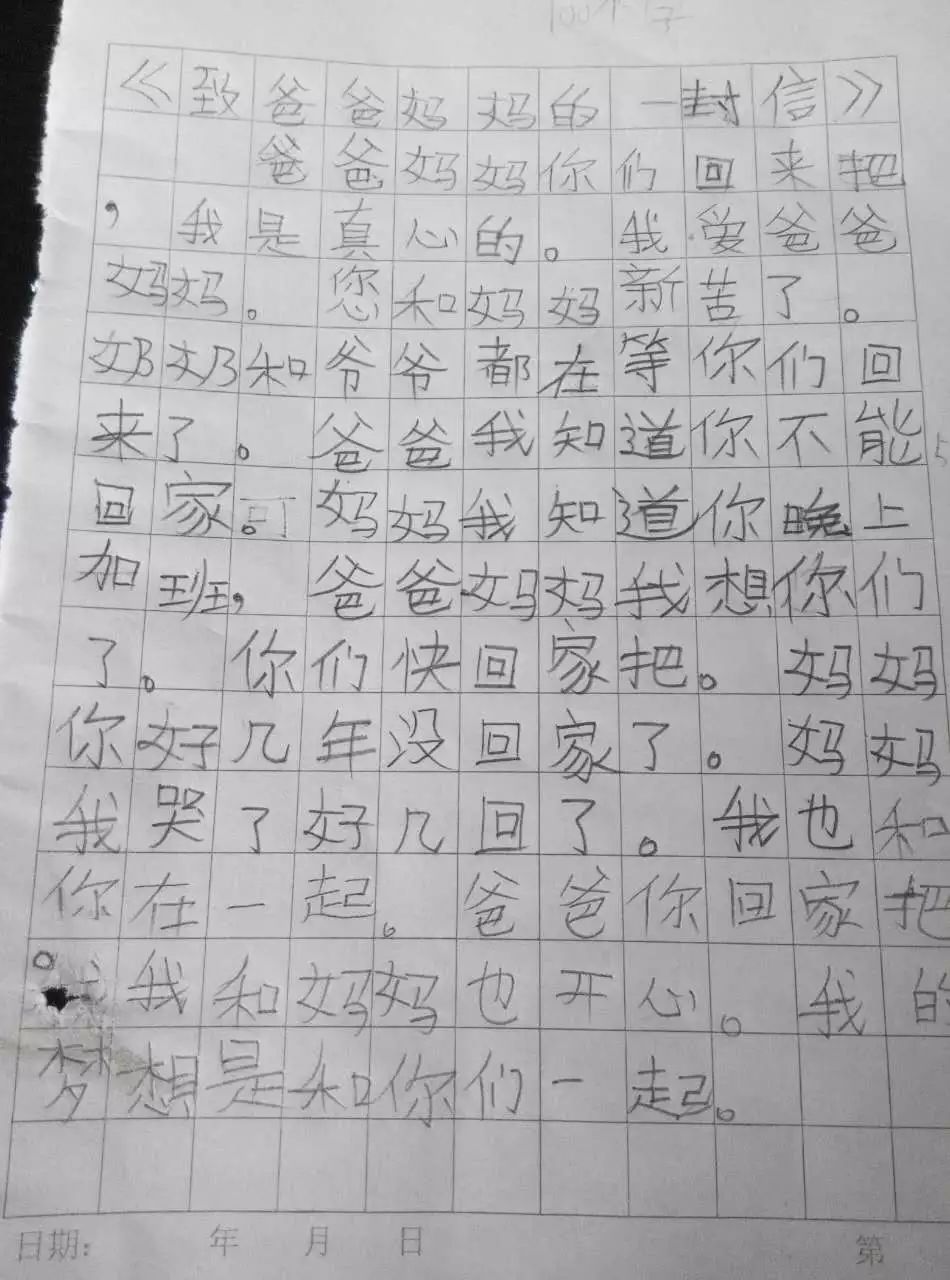 100个字
《致爸爸妈妈的一封信》
爸爸妈妈你们回来把
，我是真心的。我爱爸爸
妈妈。您和妈妈新苦了。
奶奶和爷爷都在等你们回
来了。爸爸我知道你不能
回家。可妈妈我知道你晚上
加班，爸爸妈妈我想你们
了。你们快回家把。妈妈
你好几年没回家了。妈妈
我哭了好几回了。我也和
你在一起。爸爸你回家把
。我和妈妈也开心。我的
梦想是和你们一起。
日期： 年 月 日 第